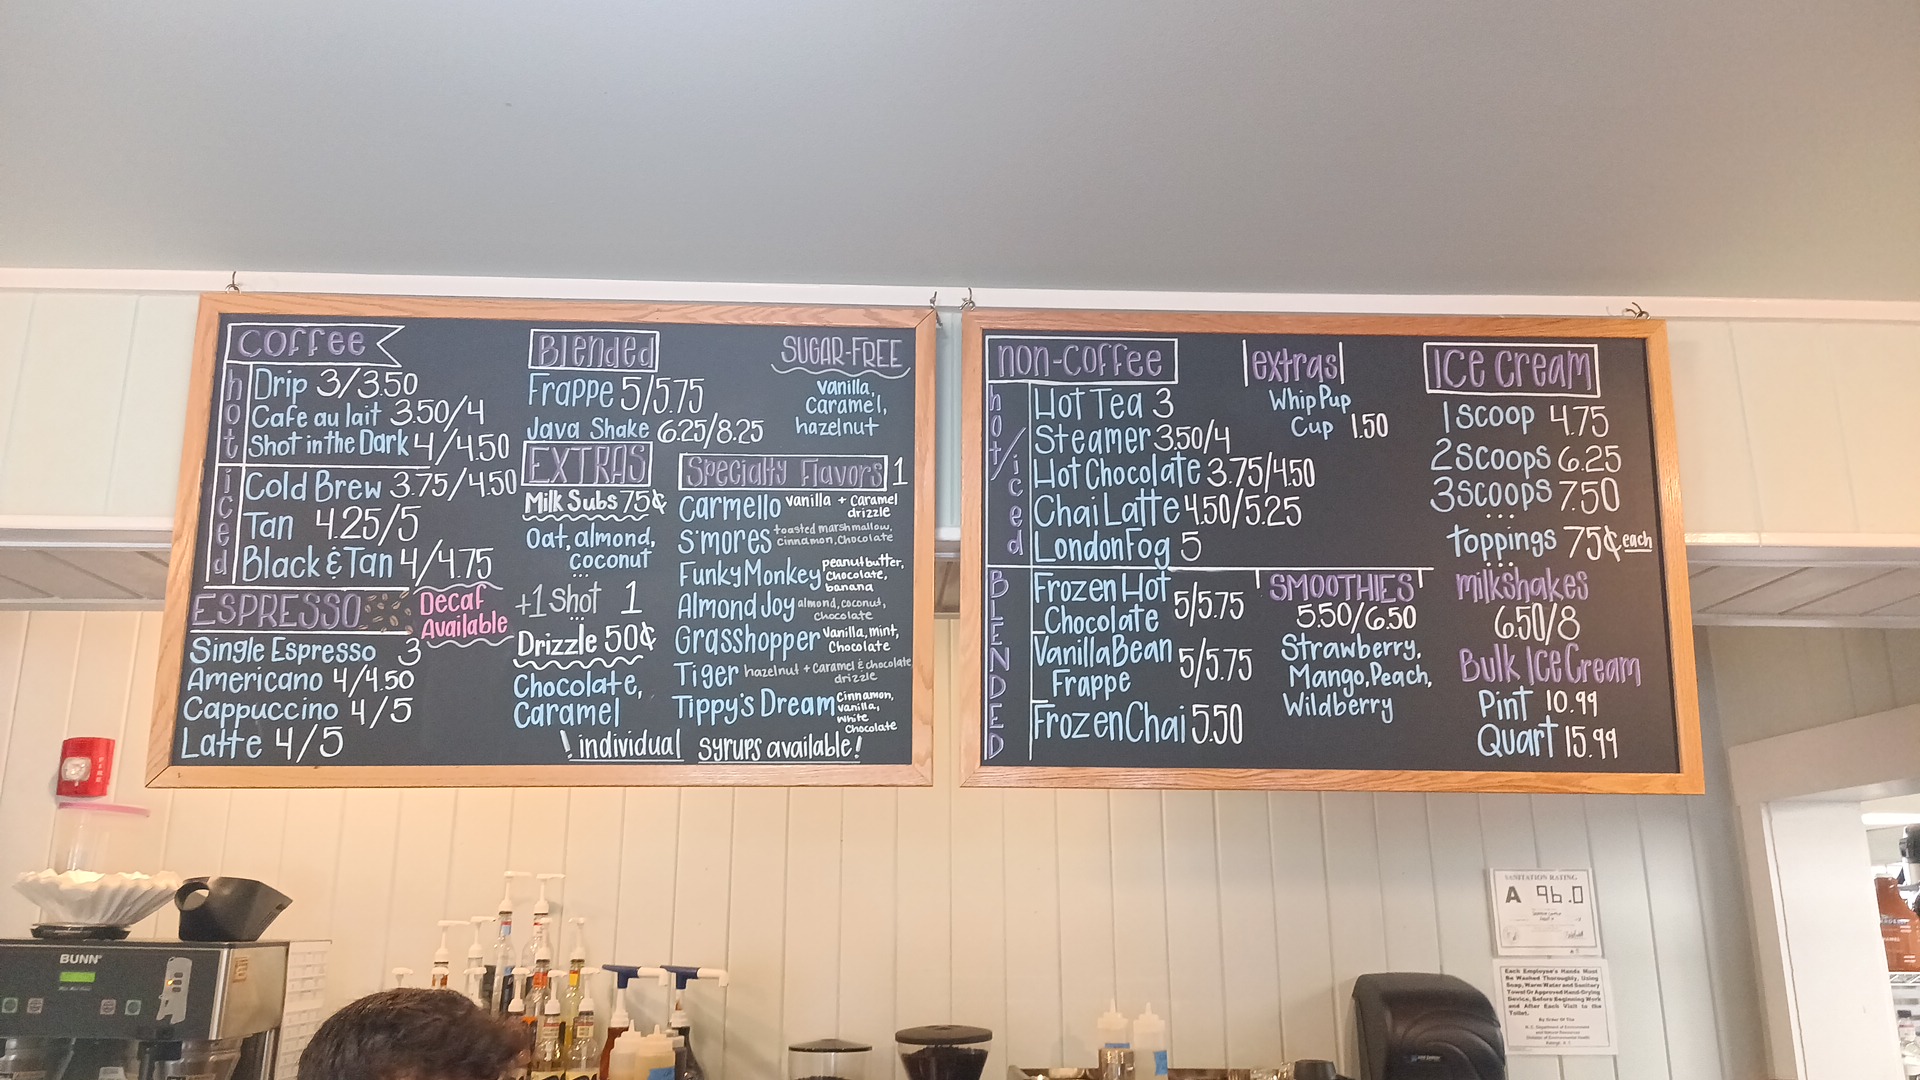 Coffee
hot
Drip 3/3.50
Cafe au lait 3.50/4
Shot in the Dark 4/4.50
iced
Cold Brew 3.75/4.50
Tan 4.25/5
Black & Tan 4/4.75
ESPRESSO
Decaf
Available
Single Espresso 3
Americano 4/4.50
Cappuccino 4/5
Latte 4/5
Blended
Frappe 5/5.75
Java Shake 6.25/8.25
EXTRAS
Milk Subs 75¢
Oat, almond,
coconut
+1 shot 1
Drizzle 50¢
Chocolate,
Caramel
SUGAR-FREE
vanilla,
Caramel,
hazelnut
Specialty Flavors 1
Carmello vanilla + Caramel
drizzle
S'mores toasted marshmallow,
cinnamon, Chocolate
Funky Monkey peanut butter,
Chocolate,
banana
Almond Joy almond, coconut,
Chocolate
Grasshopper Vanilla, mint,
Chocolate
Tiger hazelnut + Caramel & chocolate
drizzle
Tippy's Dream Cinnamon,
vanilla,
white
Chocolate
! individual syrups available!
non-coffee
hot/iced
Hot Tea 3
Steamer 3.50/4
Hot Chocolate 3.75/4.50
Chai Latte 4.50/5.25
London Fog 5
BLENDED
Frozen Hot
Chocolate 5/5.75
Vanilla Bean
Frappe 5/5.75
Frozen Chai 5.50
extras
Whip Pup
Cup 1.50
SMOOTHIES
5.50/6.50
Strawberry,
Mango, Peach,
Wildberry
Ice Cream
1 scoop 4.75
2 scoops 6.25
3 scoops 7.50
toppings 75¢ each
milkshakes
6.50/8
Bulk Ice Cream
Pint 10.99
Quart 15.99
FIRE
BUNN
SANITATION RATING
A 96.0
Each Employee's Hands Must
Be Washed Thoroughly, Using
Soap, Warm Water and Sanitary
Towel Or Approved Hand-Drying
Device, Before Beginning Work
and After Each Visit to the
Toilet.
By Order Of The
N.C. Department of Environment
and Natural Resources
Division of Environmental Health
Raleigh, N.C.